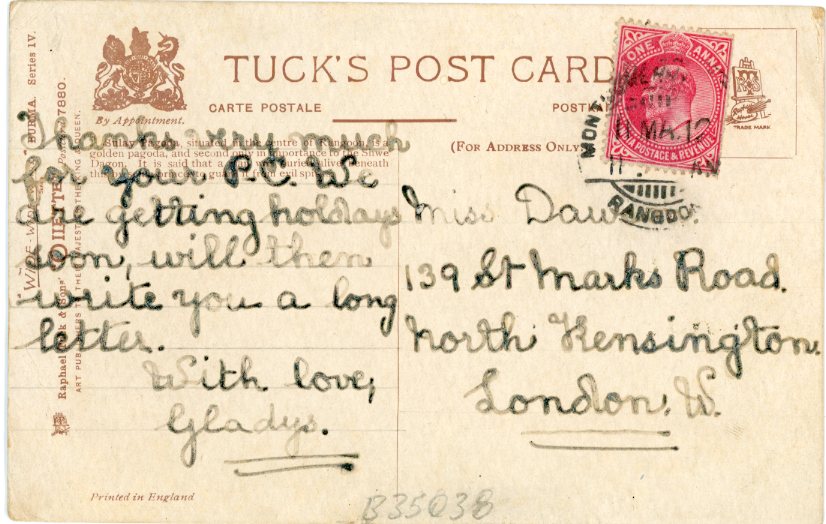 TUCK'S POST CARD
CARTE POSTALE
By Appointment.
(For Address Only
Sulay Pagoda, situated in the centre of Rangoon is a
golden pagoda, and second only in importance to the Shwe
Dagon. It is said that a man was buried alive beneath
to guard it from evil
Thanks very much
for your P.C. We
are getting holdiays
soon, will then
write you a long
letter.
With love,
Gladys.
Miss Daw
139 St Marks Road.
North Kensington.
London. W.
ONE ANNA
POSTAGE & REVENUE
11 MA.12
RANGOO
TRADE MARK
BURMA. Series IV.
7880.
Raphael Tuck & Sons'
ART PUBLISHERS TO THEIR MAJESTIES THE KING & QUEEN.
Printed in England
B35038